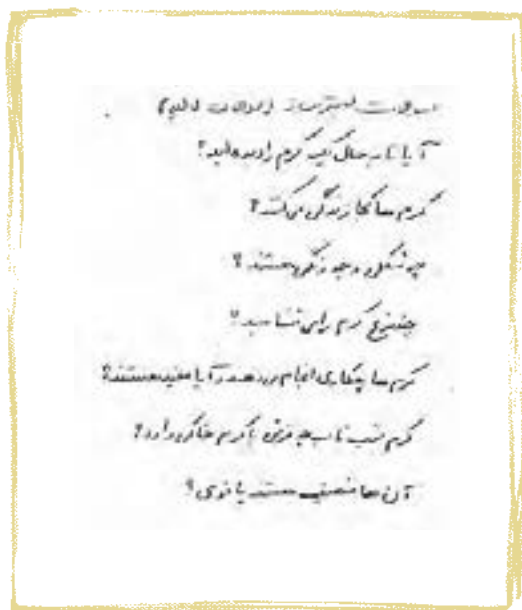 سوالات
آیا تا به حال یک کرم را دیده‌اید؟
کرم ها کجا زندگی می کنند؟
چه شکلی و چه رنگی هستند؟
چند نوع کرم را می شناسید؟
کرم ها چکاری انجام می دهند و آیا مفید هستند؟
کرم شب تاب چه فرقی با کرم خاکی دارد؟
آن ها ضعیف هستند یا قوی؟